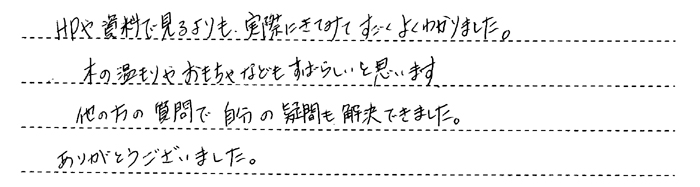 HPや資料で見るよりも、実際にきてみてすごくよくわかりました。
木の温もりやおもちゃなどもすばらしいと思います
他の方の質問で自分の疑問も解決できました。
ありがとうございました。